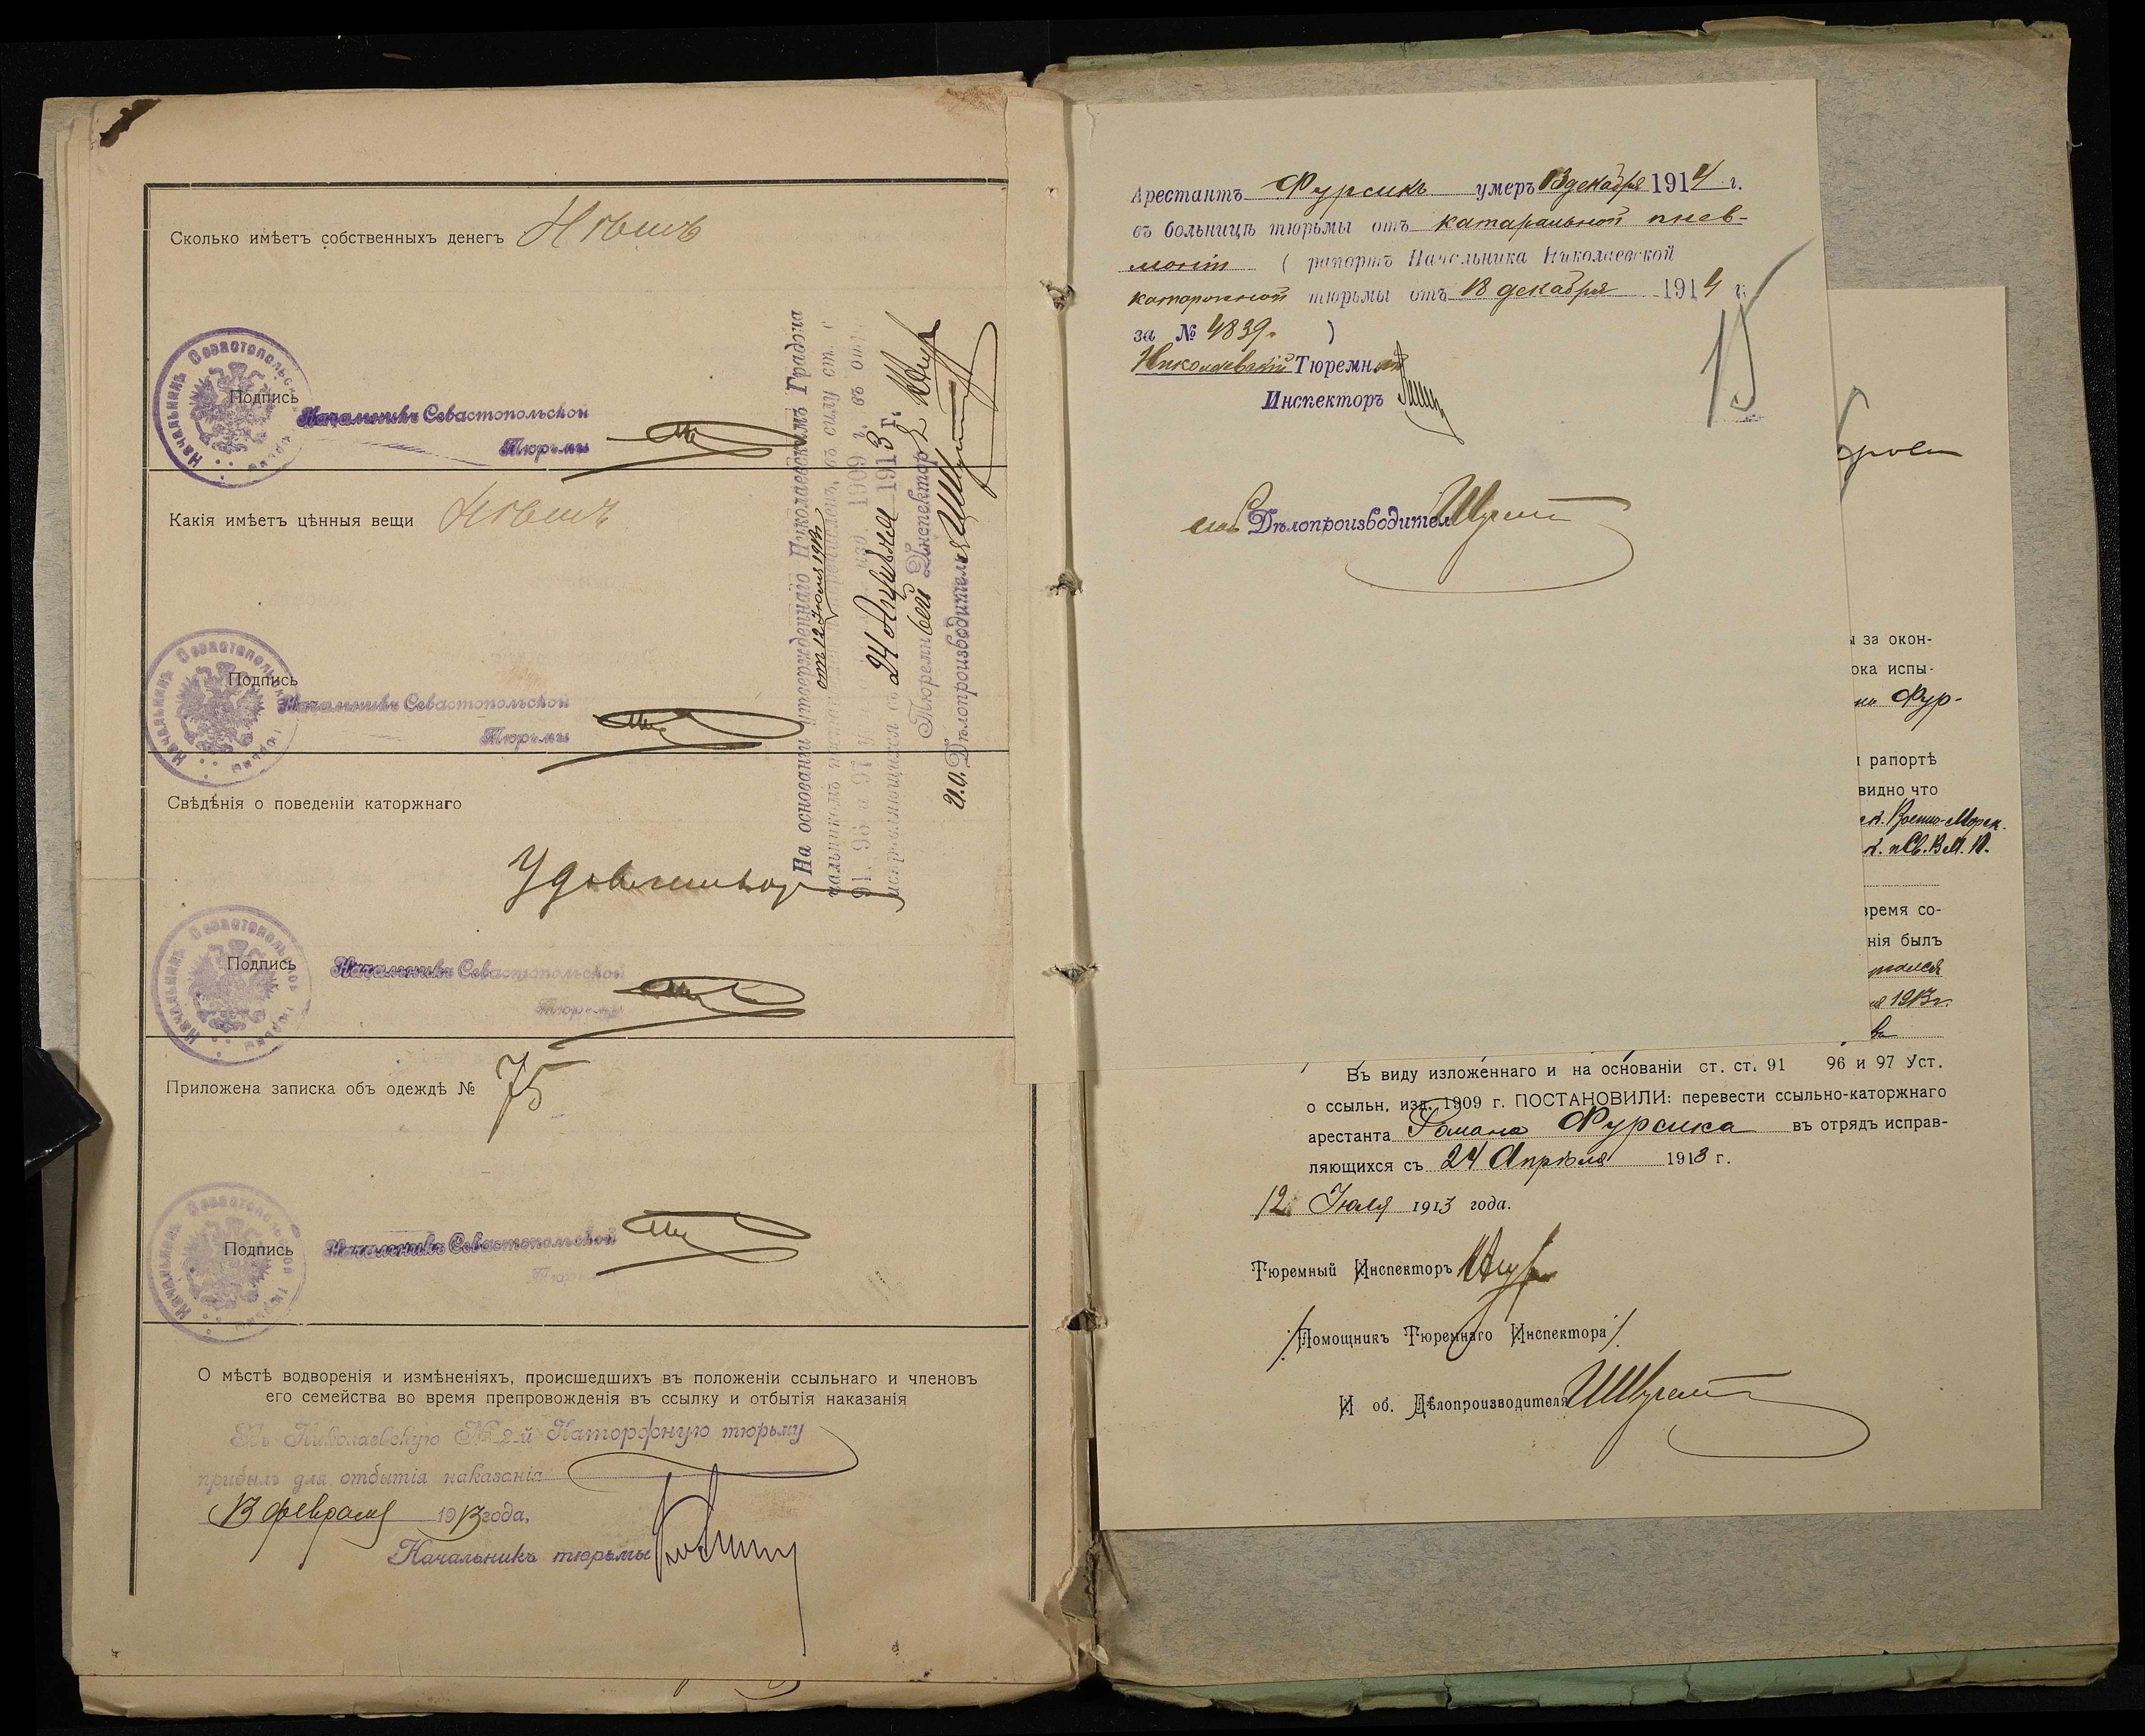 Сколько имѣетъ собственныхъ денегъ Нѣтъ
Начальникъ Севастопольской Тюрьмы
Подпись Начальникъ Севастопольской
Тюрьмы
Какія имѣетъ цѣнныя вещи Нѣтъ
Начальникъ Севастопольской Тюрьмы
Подпись Начальникъ Севастопольской
Тюрьмы
Свѣдѣнія о поведеніи каторжнаго
Удовлетвор
Начальникъ Севастопольской Тюрьмы
Подпись Начальникъ Севастопольской
Тюрьмы
Приложена записка объ одеждѣ № 75
Начальникъ Севастопольской Тюрьмы
Подпись Начальникъ Севастопольской
Тюрьмы
О мѣстѣ водворенія и измѣненіяхъ, происшедшихъ въ положеніи ссыльнаго и членовъ
его семейства во время препровожденія въ ссылку и отбытія наказанія
Въ Николаевскую № 2-й Каторжную тюрьму
прибылъ для отбытія наказанія
13 февраля 1913 года,
Начальникъ тюрьмы
На основаніи утвержденнаго Николаевскимъ Градона
от 12 Июля 1913 г.
чальникомъ въ силу ст. с
91, 96 и 97 изд. 1909 г. въ
исправляющихся съ 24 Апрѣля 1913 г.
Тюремный Инспекторъ
И.О. Дѣлопроизводителя
Арестантъ Фурсикъ умеръ 13 декабря 1914 г.
въ больницѣ тюрьмы отъ катаральной пнев-
моніи ( рапортъ Начальника Николаевской
каторжной тюрьмы отъ 18 декабря 1914 г.
за № 4839. )
Николаевскій Тюремный
Инспекторъ
Дѣлопроизводител
15
ы за окон-
ока испы-
Фур-
рапортѣ
видно что
Военно-Морск.
время со-
нія былъ
1913 г.
Въ виду изложеннаго и на основаніи ст. ст. 91 96 и 97 Уст.
о ссыльн, изд. 1909 г. ПОСТАНОВИЛИ: перевести ссыльно-каторжнаго
арестанта Романа Фурсика въ отрядъ исправ-
ляющихся съ 24 Апрѣля 1913 г.
12 Июля 1913 года.
Тюремный Инспекторъ
/Помощникъ Тюремнаго Инспектора/
И об. Дѣлопроизводителя